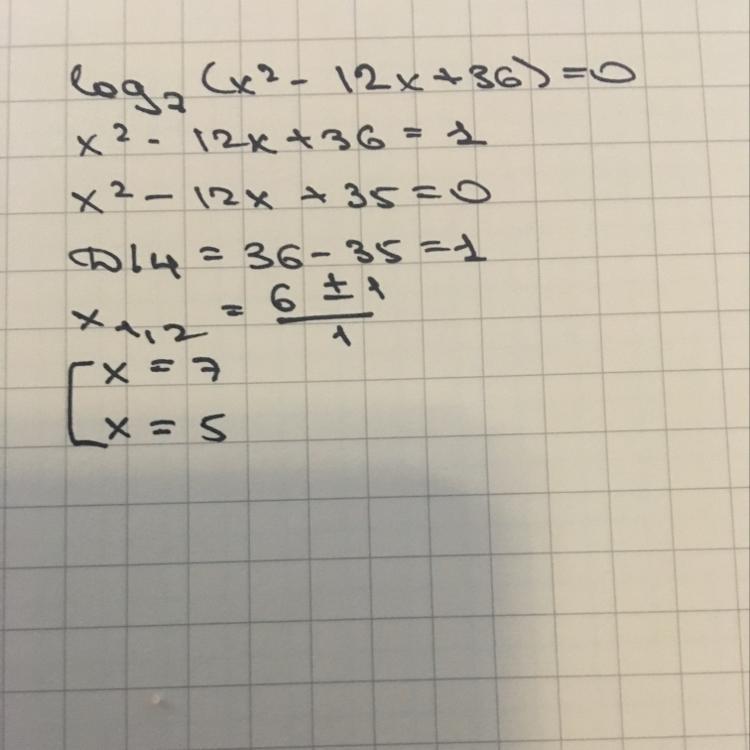 log₇ (x² - 12x + 36) = 0
x² - 12x + 36 = 1
x² - 12x + 35 = 0
D/4 = 36 - 35 = 1
x₁,₂ = (6 ± 1)/1
[ x = 7
x = 5